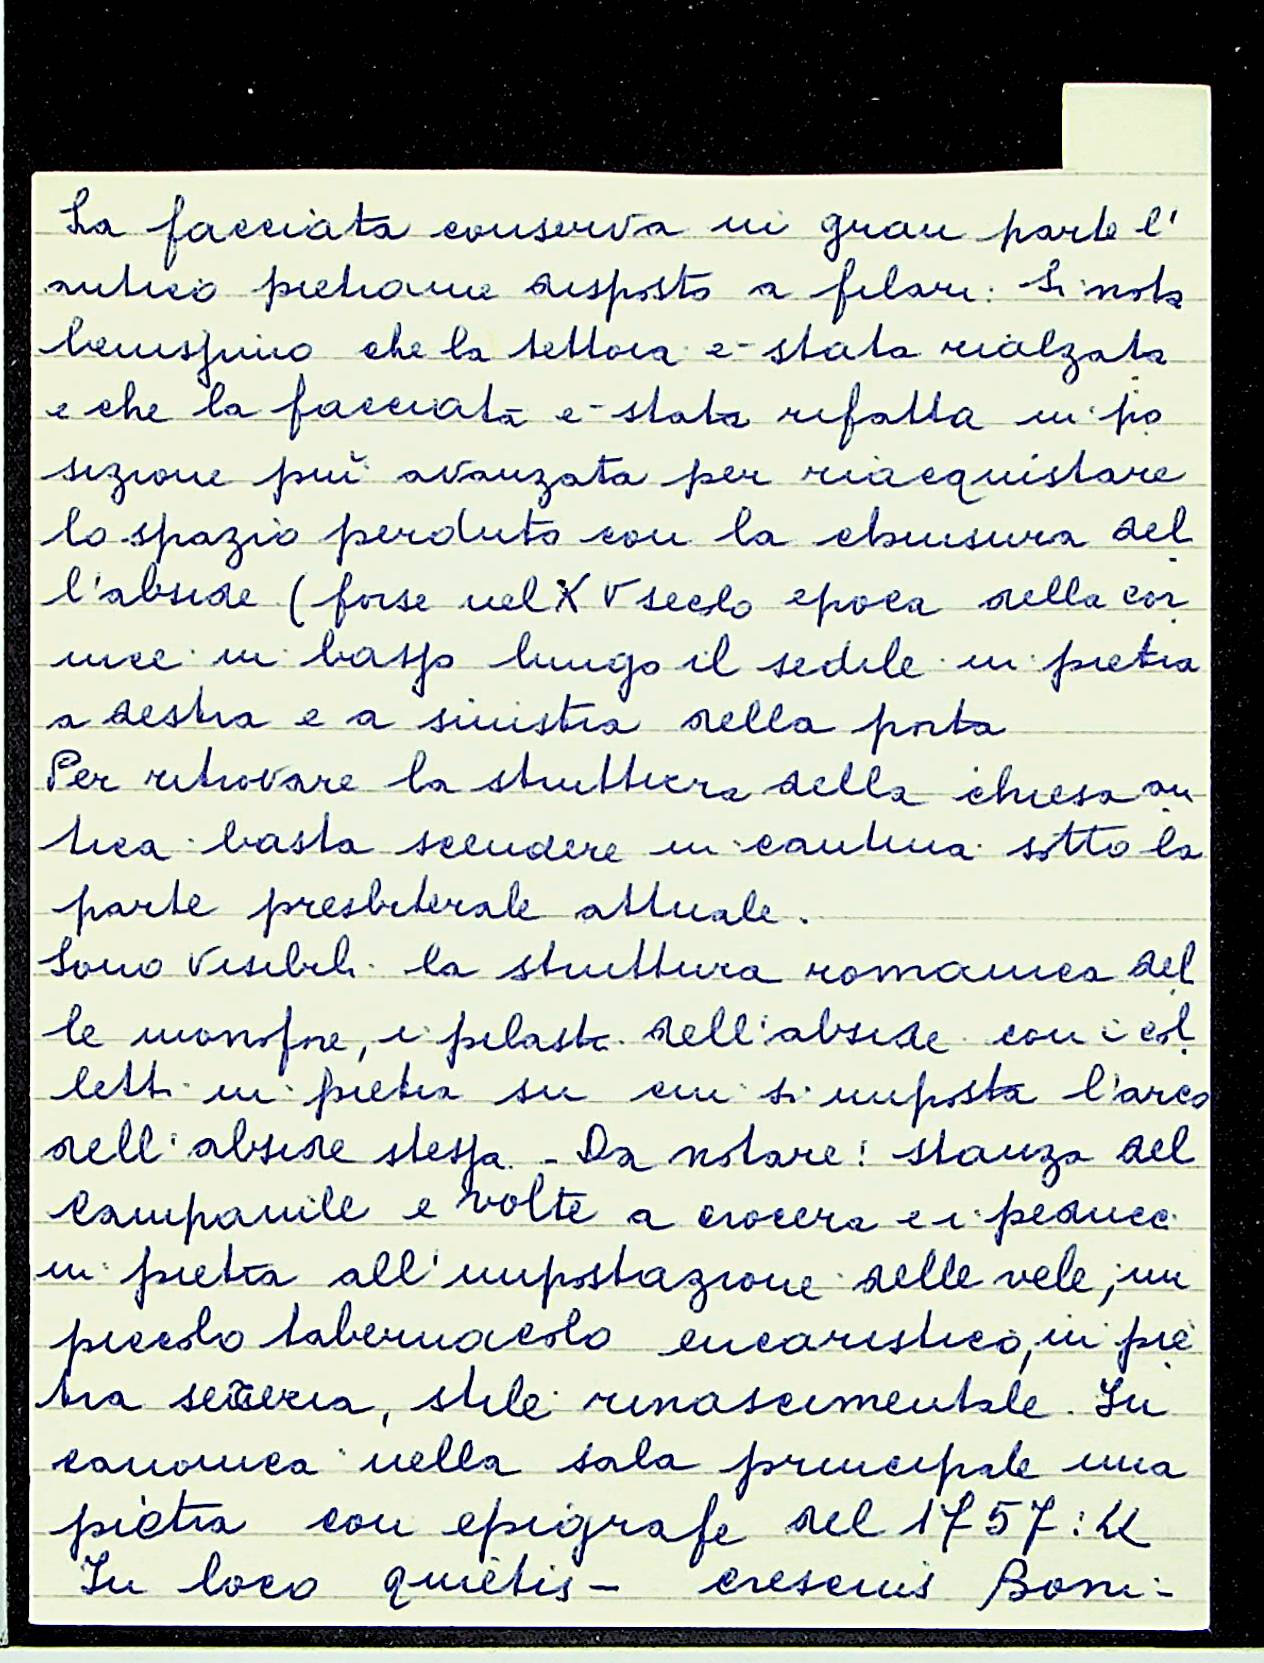 La facciata conserva in gran parte l'
antico pietrame disposto a filari. Si nota
benissimo che la tettoia e- stata rialzata
e che la facciata e- stata rifatta in po
sizione più avanzata per riacquistare
lo spazio perduto con la chiusura del
l'abside (forse nel XV secolo epoca della cor
nice in basso lungo il sedile in pietra
a destra e a sinistra della porta
Per ritrovare la struttura della chiesa an
tica basta scendere in cantina sotto la
parte presbiterale attuale.
Sono visibili la struttura romanica del
le monofore, i pilastri dell'abside con i col
letti in pietra su cui si imposta l'arco
dell'abside stessa - Da notare: stanza del
campanile e volte a crocera e i peducci
in pietra all'impostazione delle vele, un
piccolo tabernacolo eucaristico, in pie
tra serena, stile rinascimentale. In
canonica nella sala principale una
pietra con epigrafe del 1757: «
In loco quietis - Boni-